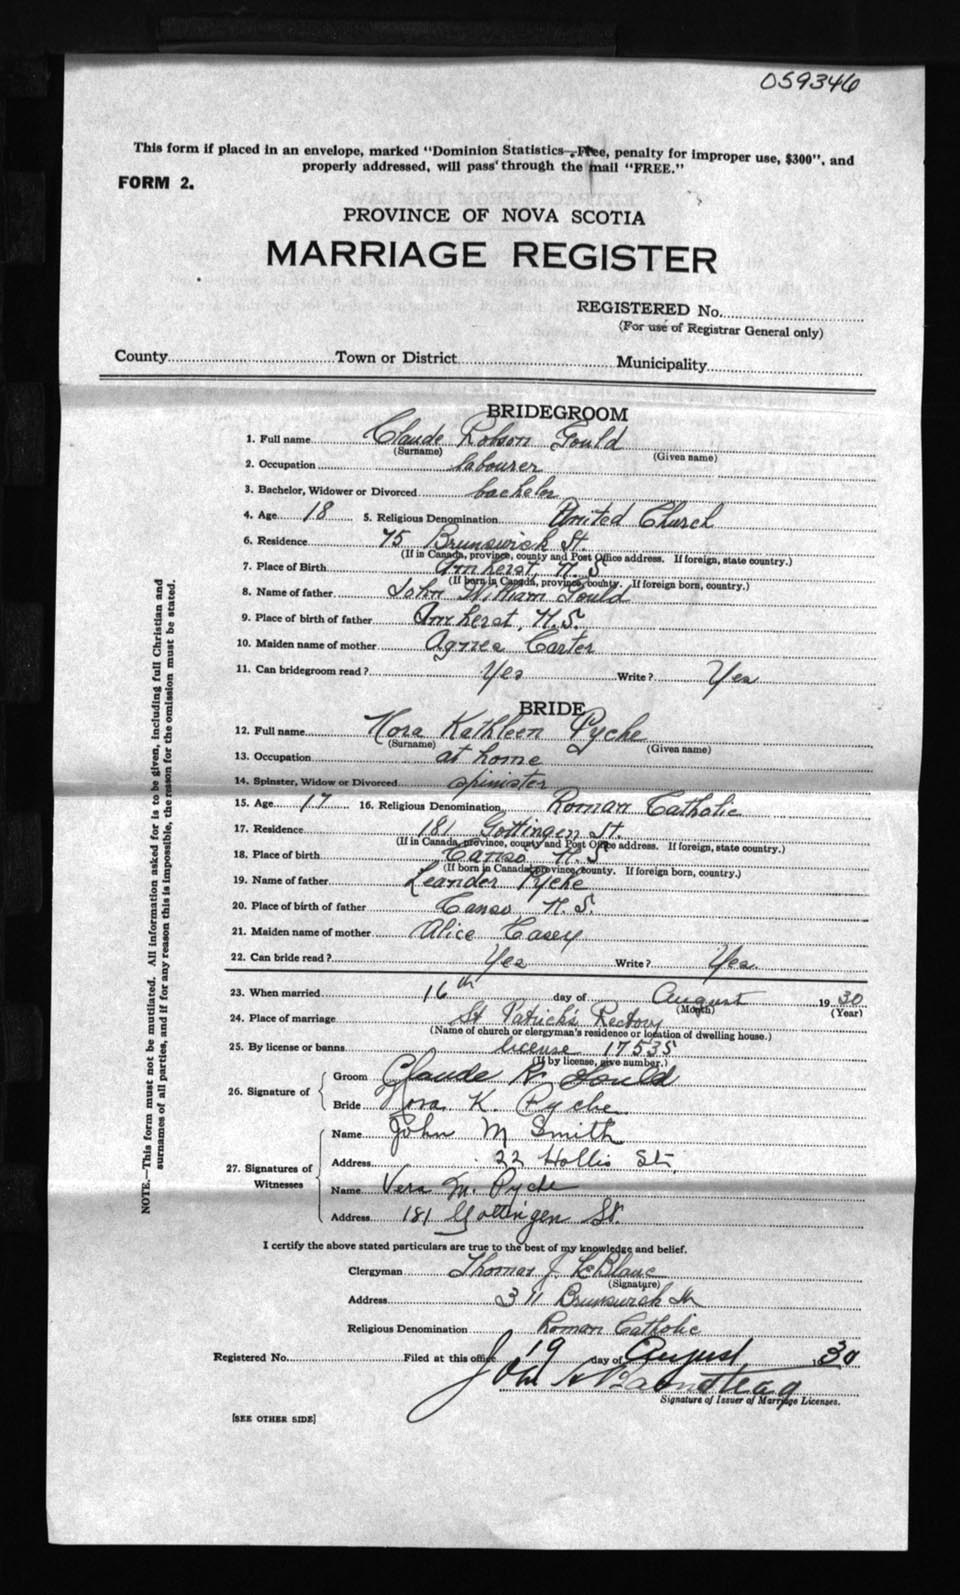 059346
This form if placed in an envelope, marked "Dominion Statistics—Free, penalty for improper use, $300", and
properly addressed, will pass through the mail "FREE."
FORM 2.
PROVINCE OF NOVA SCOTIA
MARRIAGE REGISTER
REGISTERED No.
(For use of Registrar General only)
County Town or District Municipality
BRIDEGROOM
1. Full name Claude Robson Gould
(Surname) (Given name)
2. Occupation labourer
3. Bachelor, Widower or Divorced bachelor
4. Age 18 5. Religious Denomination United Church
6. Residence 75 Brunswick St.
(If in Canada, province, county and Post Office address. If foreign, state country.)
7. Place of Birth Amherst, N.S
(If born in Canada, province, county. If foreign born, country.)
8. Name of father John William Gould
9. Place of birth of father Amherst, N.S.
10. Maiden name of mother Agnes Carter
11. Can bridegroom read? Yes Write? Yes
BRIDE
12. Full name Nora Kathleen Pyche
(Surname) (Given name)
13. Occupation at home
14. Spinster, Widow or Divorced spinister
15. Age 17 16. Religious Denomination Roman Catholic
17. Residence 181 Gottingen St.
(If in Canada, province, county and Post Office address. If foreign, state country.)
18. Place of birth Canso N.S
(If born in Canada, province, county. If foreign born, country.)
19. Name of father Leander Pyche
20. Place of birth of father Canso N.S.
21. Maiden name of mother Alice Casey
22. Can bride read? Yes Write? Yes.
23. When married 16th day of August 1930
(Month) (Year)
24. Place of marriage St Patrick's Rectory
(Name of church or clergyman's residence or location of dwelling house.)
25. By license or banns license 17535
(If by license, give number.)
26. Signature of Groom Claude R. Gould
Bride Nora K. Pyche
27. Signatures of Witnesses
Name John M Smith
Address 22 Hollis St.
Name Vera M. Pyche
Address 181 Gottingen St.
I certify the above stated particulars are true to the best of my knowledge and belief.
Clergyman Thomas J. LeBlanc
(Signature)
Address 311 Brunswick St
Religious Denomination Roman Catholic
Registered No. Filed at this office 19 day of August 30
John
Signature of Issuer of Marriage Licenses.
[SEE OTHER SIDE]
NOTE.—This form must not be mutilated. All information asked for is to be given, including full Christian and
surnames of all parties, and if for any reason this is impossible, the reason for the omission must be stated.